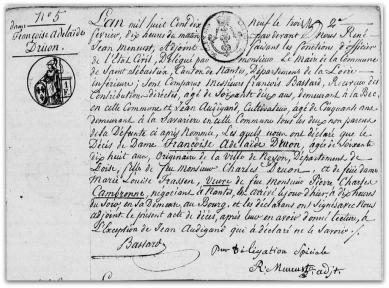 N° 5
dame
Françoise Adelaïde
Druon.
L'an mil huit cent dix neuf le trois
février, dix heures du matin, par devant nous René
Jean Meneust, Adjoint faisant les fonctions d'officier
de l'Etat Civil, Délégué par Monsieur Le Maire de la Commune
de Saint Sébastien, Canton de Nantes, Département de la Loire
inférieure; sont Comparus Monsieur François Bassard, Receveur des
Contributions directes, agé de Soixante dix ans, demeurant à la
en cette Commune et Jean Audigand, Cultivateur, agé de Cinquante ans
demeurant à la Savarière en cette Commune tous les deux non parens
de la Défunte ci après Nommée, Les quels nous ont déclaré que le
Décès de Dame Françoise Adelaïde Druon, agée de Soixante
dix huit ans, Originaire de la Ville de Noyon, Département de
Loise, fille de feu Monsieur Charles Druon, et de feue dame
Marie Louise Frassen, Veuve de feu Monsieur Pierre Charles
Cambronne, négociant à Nantes, est arrivé
Soir, en Sa Demeure, au Bourg, et les déclarans ont Signé avec Nous
adjoint le présent acte de décès, après leur en avoir donné lecture, à
l'Exception de Jean Audigand qui a déclaré ne le Savoir.
Bassard
Par Délégation Spéciale
R. Meneust adjt